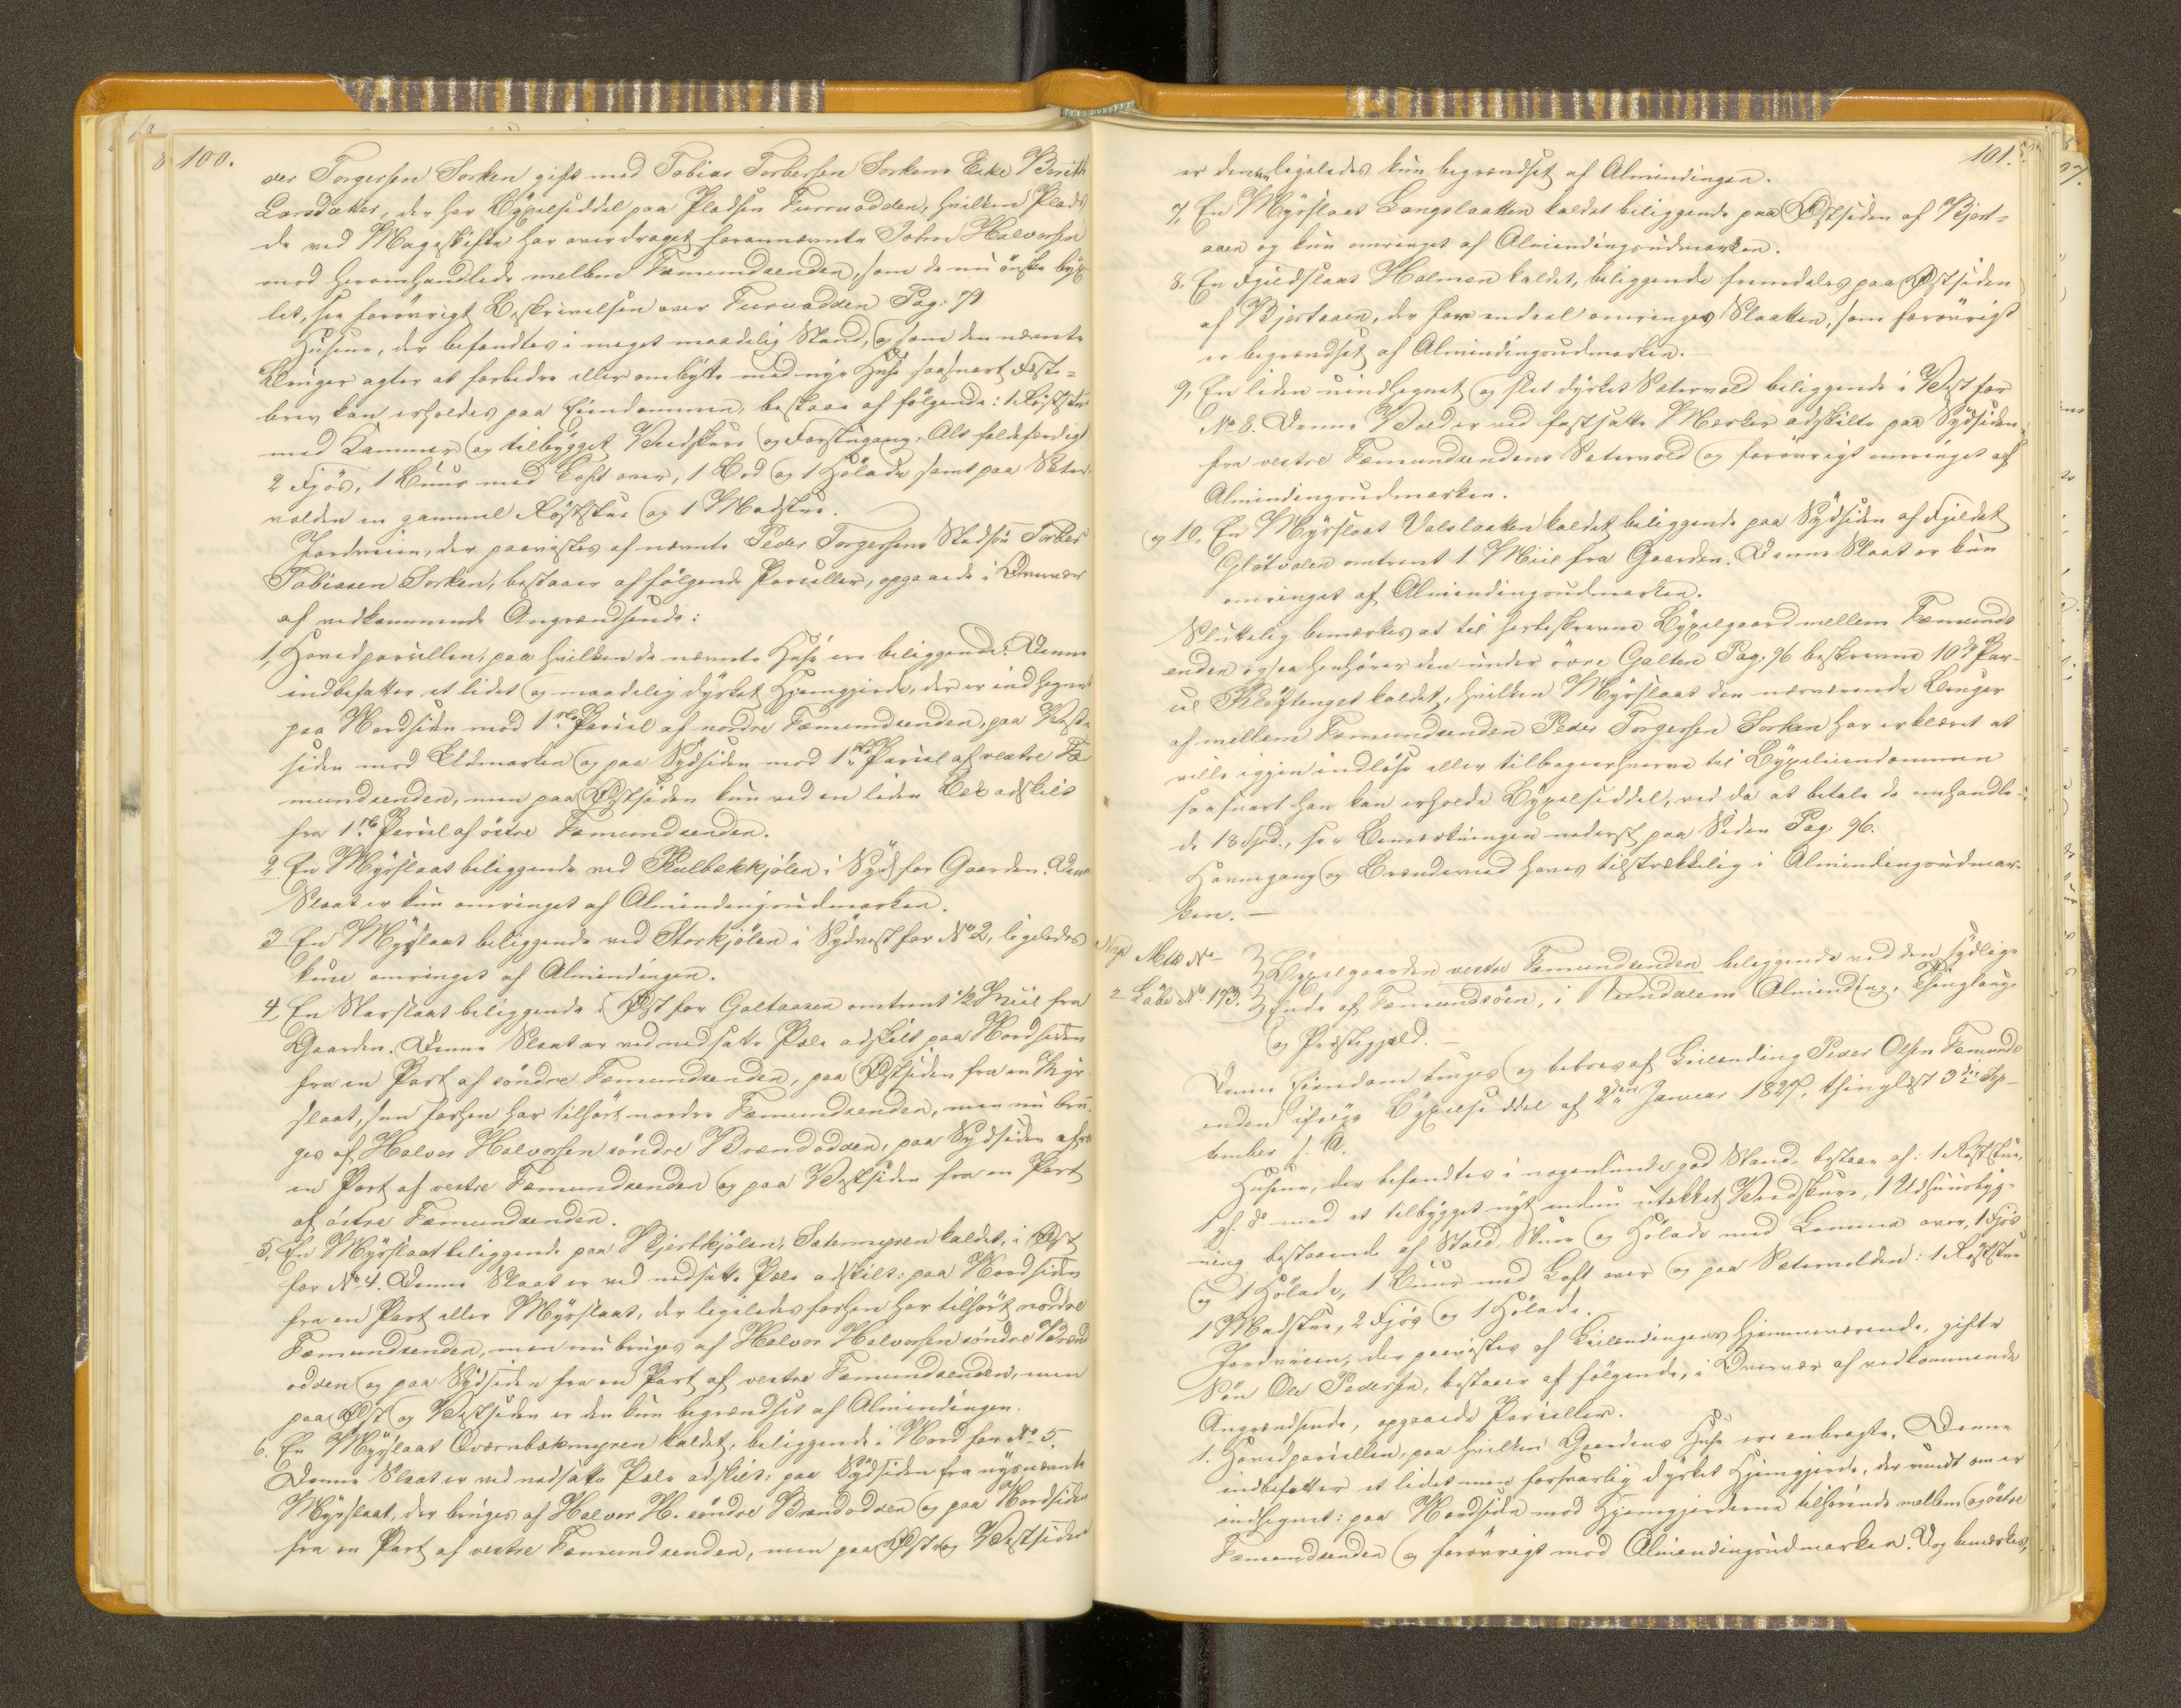 100.
der Torgersen Sorken gift med Tobias Torbersen Sorkens Enke Berith
Larsdatter, der har Bÿgselseddel paa Pladsen Furuodden, hvilken Plads
de ved Mageskifte har overdraget forannævnte John Halvorsen
mod heromhandlede mellem Fæmundsenden, som de nu ønske bÿgs
let, see forøvrigt Beskrivelsen over Furuodden Pag: 79
Husene, der befandtes i meget maadelig Stand, og som den nævnte
Bruger agter at forbedre eller ombÿtte med nÿe Huse saasnart Feste-
brev kan erholdes paa Eiendommen, bestaaer af følgende: 1 Røststue
med Kammer og tilbÿgget Vedskuur og Forstugang, Alt faldefærdigt
2 Fjøs, 1 Buur med Loft over, 1 Bod og 1 Hølade samt paa Sæter-
volden en gammel Røststue og 1 Madstue.
Jordveien, der paavistes af nævnte Peder Torgersens Stedsøn Torber
Tobiasen Sorken, bestaaer af følgende Parceller, opgaaede i Overvær
af vedkommende Angrændsende:
1, Hovedparcellen, paa hvilken de nævnte Huse ere beliggende. Denne
indbefatter et lidet og maadelig dÿrket Hjemgjerde, der er indhegnet
paa Nordsiden mod 1ste Parcel af nordre Fæmundsenden, paa Vest-
siden mod Udmarken og paa Sÿdsiden mod 1ste Parcel af vestre Fæ-
mundsenden, men paa Østsiden kun ved en liden Bæk adskilt
fra 1ste Parcel af østre Fæmundsenden.
2. En Mÿrslaat beliggende ved Kulbækkjølen i Sÿd for Gaarden. Denne
Slaat er kun omringet af Almindingsudmarken.
3. En Mÿrslaat beliggende ved Storkjølen i Sÿdvest for No 2, ligeledes
kun omringet af Almindingen.
4. En Starslaat beliggende i Øst for Galtaasen omtrent ½ Miil fra
Gaarden. Denne Slaat er ved nedsatte Pæle adskilt paa Nordsiden
fra en Part af søndre Fæmundsenden, paa Østsiden fra en Mÿr-
slaat, som forhen har tilhørt nordre Fæmundsenden, men nu bru-
ges af Halvor Halvorsen søndre Brændodden, paa Sÿdsiden af
en Part af vestre Fæmundsenden og paa Vestsiden fra en Part
af østre Fæmundsenden.
5. En Mÿrslaat beliggende paa Bjertkjølen, Sætermyren kaldet, i Øst
for No 4. Denne Slaat er ved nedsatte Pæle adskilt: paa Nordsiden
fra en Part eller Mÿrslaat, der ligeledes forhen har tilhørt nordre
Fæmundsenden, men nu bruges af Halvor Halvorsen søndre Brænd
odden og paa Sÿdsiden fra en Part af vestre Fæmundsenden, men
paa Øst og Vestsiden er den kun begrændset af Almindingen.
6. En Mÿrslaat Qværnbækmyren kaldet, beliggende i Nord for No 5.
Denne Slaat er ved nedsatte Pæle adskilt: paa Sÿdsiden fra nÿsnævnte
Mÿrslaat, der bruges af Halvor H. søndre Brændodden og paa Nordsiden
fra en Part af vestre Fæmundsenden, men paa Øst og Vestsiden
101.
er den ligeledes kun begrændset af Almindingen.
7, En Mÿrslaat Langslaatten kaldet beliggende paa Østsiden af Bjert-
aaen og kun omringet af Almindingsudmarken.
8. En Fjeldslaat Holmen kaldet, beliggende fremdeles paa Østsiden
af Bjertaaen, der for endeel omringer Slaatten, som forøvrigt
er begrændset af Almindingsudmarken.
9, En liden uindhegnet og slet dÿrket Sætervold beliggende i Vest for
No 8. Denne Vold er ved fastsatte Mærker adskilte paa Sÿdsiden
fra vestre Fæmundsendens Sætervold og forøvrigt omringet af
Almindingsudmarken.
og 10. En Mÿrslaat Valslaatten kaldet beliggende paa Sÿdsiden af Fjeldet
Gløtvolen omtrent 1 Miil fra Gaarden. Denne Slaat er kun
omringet af Almindingsudmarken.
Slutelig bemærkes at til herbeskrevne Bÿgselgaard mellem Fæmunds
enden ogsaa henhører den under øvre Galten Pag: 96 beskrevne 10de Par-
cel Kløftenget kaldet, hvilken Mÿrslaat den nærværende Bruger
af mellem Fæmundsenden Peder Torgersen Sorken har erklæret at
ville igjen indløse eller tilbageerhverve til Bÿgseleiendommen
saasnart han kan erholde Bÿgselseddel, ved da at betale de omhandle-
de 18 Spd., see Bemærkningen nederst paa Siden Pag. 96.
Havnegang og Brændeved haves tilstrækkelig i Almindingsudmar-
ken. —
Matr No — Bÿgselgaarden vestre Fæmundsenden beliggende ved den sÿdlige
2 Løbe No 173. Ende af Fæmundsøen, i Rendalens Alminding, Thinglaug
og Præstegjæld. —
Denne Eiendom bruges og beboes af Leilending Peder Olsen Fæmunds
enden ifølge Bÿgselseddel af 2den Januar 1827, thinglæst 3die Sep-
tember s. A.
Husene, der befandtes i nogenlunde god Stand, bestaaer af: 1 Røststue,
1 gl. do med et tilbÿgget nÿt endnu utækket Vedskuur, 1 Udhuusbÿg-
ning bestaaende af Stald, Skuur og Hølade med Lemme over, 1 Fjøs
og 1 Hølade, 1 Buur med Loft over og paa Sætervolden: 1 Røststue
1 Madstue, 2 Fjøs og 1 Hølade.
Jordveien, der paavistes af Leilendingens hjemmeværende, gifte
Søn Ole Pedersen, bestaaer af følgende, i Overvær af vedkommende
Angrændsende, opgaaede Parceller.
1. Hovedparcellen, paa hvilken Gaardens Huse ere anbragte. Denne
indbefatter et lidet men forsvarlig dÿrket Hjemgjerde, der rundt om er
indhegnet: paa Nordsiden mod Hjemgjerderne tilhørende mellem og østre
Fæmundsenden og forøvrigt mod Almindingsudmarken. Dog bemærkes,